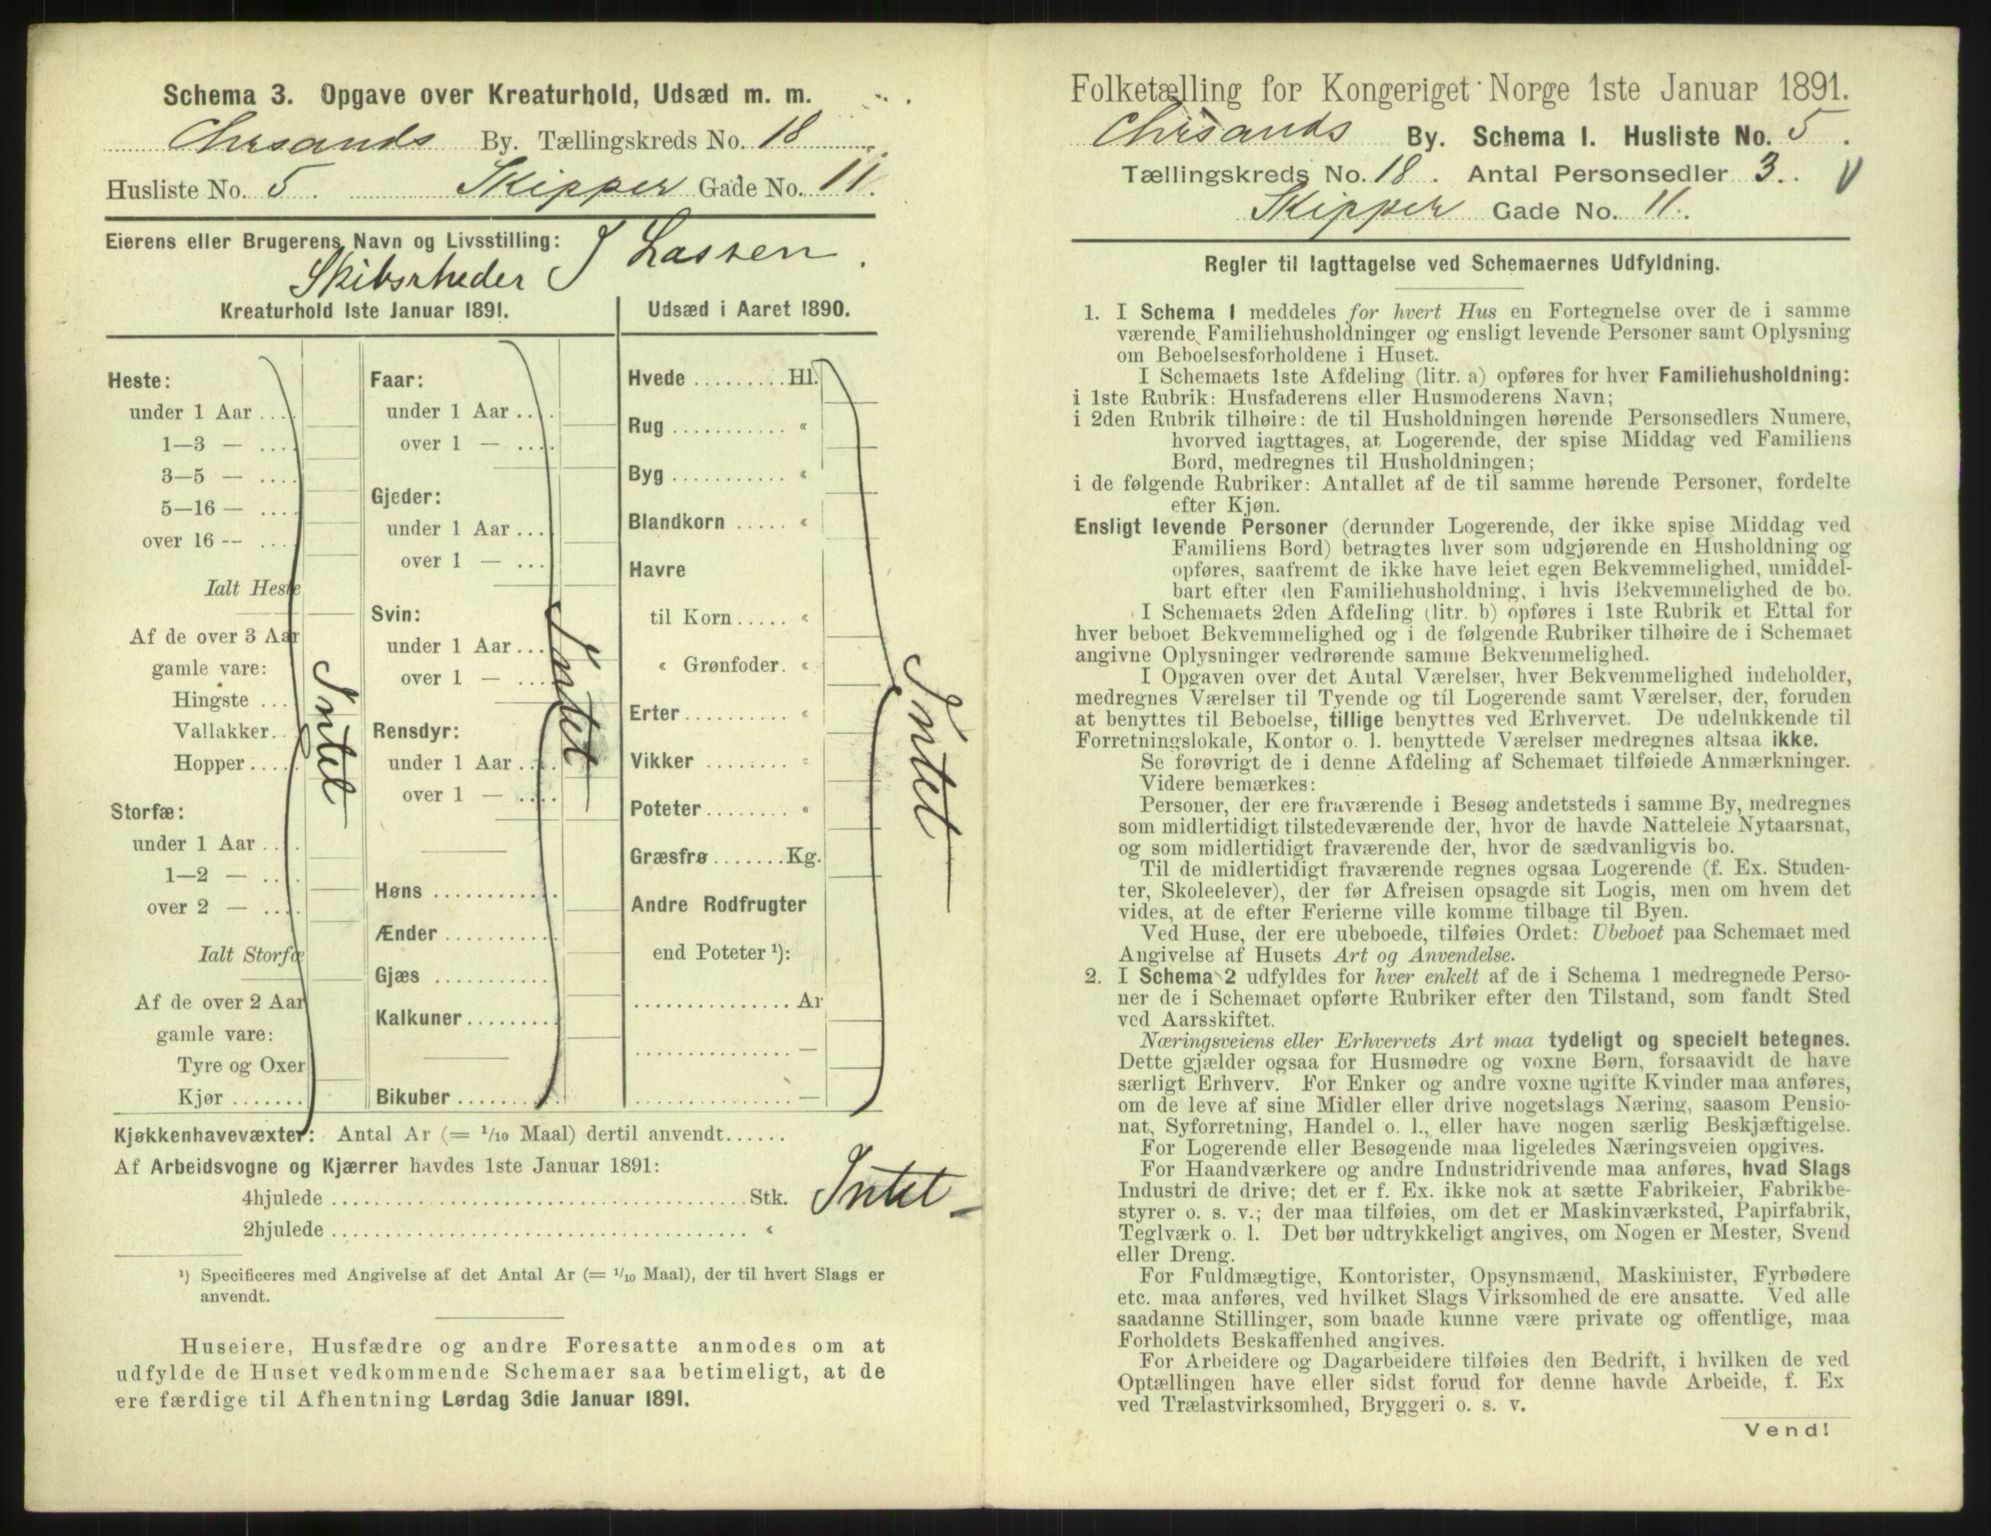 Schema 3. Opgave over Kreaturhold, Udsæd m. m.
Chrsands By. Tællingskreds No. 18
Husliste No. 5. Skipper Gade No. 11.
Eierens eller Brugerens Navn og Livsstilling:
Skibsrheder J Lassen.
Kreaturhold 1ste Januar 1891.
Heste:
under 1 Aar ....
1—3 — ....
3—5 — ....
5—16 — ....
over 16 -- ....
Ialt Heste
Af de over 3 Aar
gamle vare:
Hingste ....
Vallakker....
Hopper.....
Storfæ:
under 1 Aar ....
1—2 — ....
over 2 — ....
Ialt Storfæ
Af de over 2 Aar
gamle vare:
Tyre og Oxer
Kjør .......
Intet
Faar:
under 1 Aar....
over 1 — ....
Gjeder:
under 1 Aar....
over 1 — ....
Svin:
under 1 Aar....
over 1 — ....
Rensdyr:
under 1 Aar....
over 1 — ....
Høns ............
Ænder ..........
Gjæs ...........
Kalkuner.........
Bikuber .........
Intet
Udsæd i Aaret 1890.
Hvede .........Hl.
Rug ........... «
Byg ........... «
Blandkorn ..... «
Havre
til Korn..... «
« Grønfoder. «
Erter .......... «
Vikker ........ «
Poteter........ «
Græsfrø.......Kg.
Andre Rodfrugter
end Poteter ¹):
............... Ar
............... —
............... —
Intet
Kjøkkenhavevæxter: Antal Ar (= 1/10 Maal) dertil anvendt......
Af Arbeidsvogne og Kjærrer havdes 1ste Januar 1891:
4hjulede ........................................Stk.
2hjulede ........................................ «
Intet
¹) Specificeres med Angivelse af det Antal Ar (= 1/10 Maal), der til hvert Slags er
anvendt.
Huseiere, Husfædre og andre Foresatte anmodes om at
udfylde de Huset vedkommende Schemaer saa betimeligt, at de
ere færdige til Afhentning Lørdag 3die Januar 1891.
Folketælling for Kongeriget Norge 1ste Januar 1891.
Chrsands By. Schema I. Husliste No. 5.
Tællingskreds No. 18. Antal Personsedler 3.
Skipper Gade No. 11.
Regler til Iagttagelse ved Schemaernes Udfyldning.
1. I Schema 1 meddeles for hvert Hus en Fortegnelse over de i samme
værende Familiehusholdninger og ensligt levende Personer samt Oplysning
om Beboelsesforholdene i Huset.
I Schemaets 1ste Afdeling (litr. a) opføres for hver Familiehusholdning:
i 1ste Rubrik: Husfaderens eller Husmoderens Navn;
i 2den Rubrik tilhøire: de til Husholdningen hørende Personsedlers Numere,
hvorved iagttages, at Logerende, der spise Middag ved Familiens
Bord, medregnes til Husholdningen;
i de følgende Rubriker: Antallet af de til samme hørende Personer, fordelte
efter Kjøn.
Ensligt levende Personer (derunder Logerende, der ikke spise Middag ved
Familiens Bord) betragtes hver som udgjørende en Husholdning og
opføres, saafremt de ikke have leiet egen Bekvemmelighed, umiddel-
bart efter den Familiehusholdning, i hvis Bekvemmelighed de bo.
I Schemaets 2den Afdeling (litr. b) opføres i 1ste Rubrik et Ettal for
hver beboet Bekvemmelighed og i de følgende Rubriker tilhøire de i Schemaet
angivne Oplysninger vedrørende samme Bekvemmelighed.
I Opgaven over det Antal Værelser, hver Bekvemmelighed indeholder,
medregnes Værelser til Tyende og til Logerende samt Værelser, der, foruden
at benyttes til Beboelse, tillige benyttes ved Erhvervet. De udelukkende til
Forretningslokale, Kontor o. l. benyttede Værelser medregnes altsaa ikke.
Se forøvrigt de i denne Afdeling af Schemaet tilføiede Anmærkninger.
Videre bemærkes:
Personer, der ere fraværende i Besøg andetsteds i samme By, medregnes
som midlertidigt tilstedeværende der, hvor de havde Natteleie Nytaarsnat,
og som midlertidigt fraværende der, hvor de sædvanligvis bo.
Til de midlertidigt fraværende regnes ogsaa Logerende (f. Ex. Studen-
ter, Skoleelever), der før Afreisen opsagde sit Logis, men om hvem det
vides, at de efter Ferierne ville komme tilbage til Byen.
Ved Huse, der ere ubeboede, tilføies Ordet: Ubeboet paa Schemaet med
Angivelse af Husets Art og Anvendelse.
2. I Schema 2 udfyldes for hver enkelt af de i Schema 1 medregnede Perso-
ner de i Schemaet opførte Rubriker efter den Tilstand, som fandt Sted
ved Aarsskiftet.
Næringsveiens eller Erhvervets Art maa tydeligt og specielt betegnes.
Dette gjælder ogsaa for Husmødre og voxne Børn, forsaavidt de have
særligt Erhverv. For Enker og andre voxne ugifte Kvinder maa anføres,
om de leve af sine Midler eller drive nogetslags Næring, saasom Pensio-
nat, Syforretning, Handel o. l., eller have nogen særlig Beskjæftigelse.
For Logerende eller Besøgende maa ligeledes Næringsveien opgives.
For Haandværkere og andre Industridrivende maa anføres, hvad Slags
Industri de drive; det er f. Ex. ikke nok at sætte Fabrikeier, Fabrikbe-
styrer o. s. v.; der maa tilføies, om det er Maskinværksted, Papirfabrik,
Teglværk o. l. Det bør udtrykkeligt angives, om Nogen er Mester, Svend
eller Dreng.
For Fuldmægtige, Kontorister, Opsynsmænd, Maskinister, Fyrbødere
etc. maa anføres, ved hvilket Slags Virksomhed de ere ansatte. Ved alle
saadanne Stillinger, som baade kunne være private og offentlige, maa
Forholdets Beskaffenhed angives.
For Arbeidere og Dagarbeidere tilføies den Bedrift, i hvilken de ved
Optællingen have eller sidst forud for denne havde Arbeide, f. Ex
ved Trælastvirksomhed, Bryggeri o. s. v.
Vend!